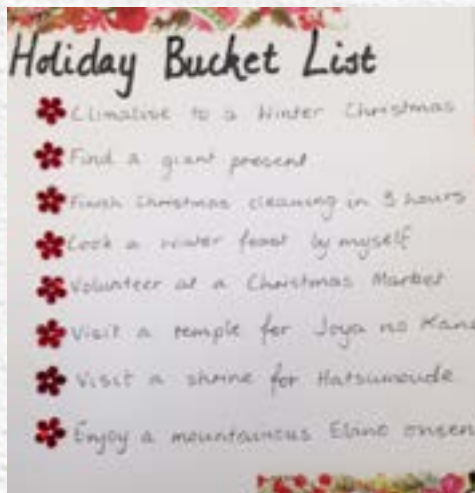 Holiday Bucket List
Climatise to a Winter Christmas
Find a giant present
Finish Christmas cleaning in 3 hours
Cook a winter feast by myself
Volunteer at a Christmas Market
Visit a temple for Joya no Kane
Visit a shrine for Hatsumoude
Enjoy a mountainous onsen